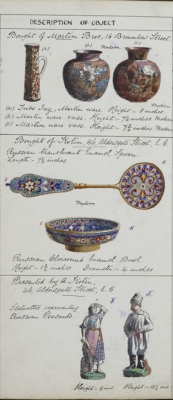 DESCRIPTION OF OBJECT.
Bought of Martin Bros, 16 Brownlow Street.
(a) (a) (a)
Modern
(a) Tube Jug, Martin ware. Height - 8 inches Modern
(a) Martin ware vase. Height - 7½ inches Modern
(a) Martin ware vase. Height - 7½ inches Modern
Bought of Kolin, 46, Aldersgate Street, E.C.
Russian translucent Enamel Spoon
Length - 7½ inches
Modern
Russian Cloisonné Enamel Bowl
Height - 1¾ inches Diameter - 4 inches
Presented by A. Kolin,
46, Aldersgate Street, E.C.
Statuettes representing
Russian Peasants
Height - 9 inch Height - 10½ inch